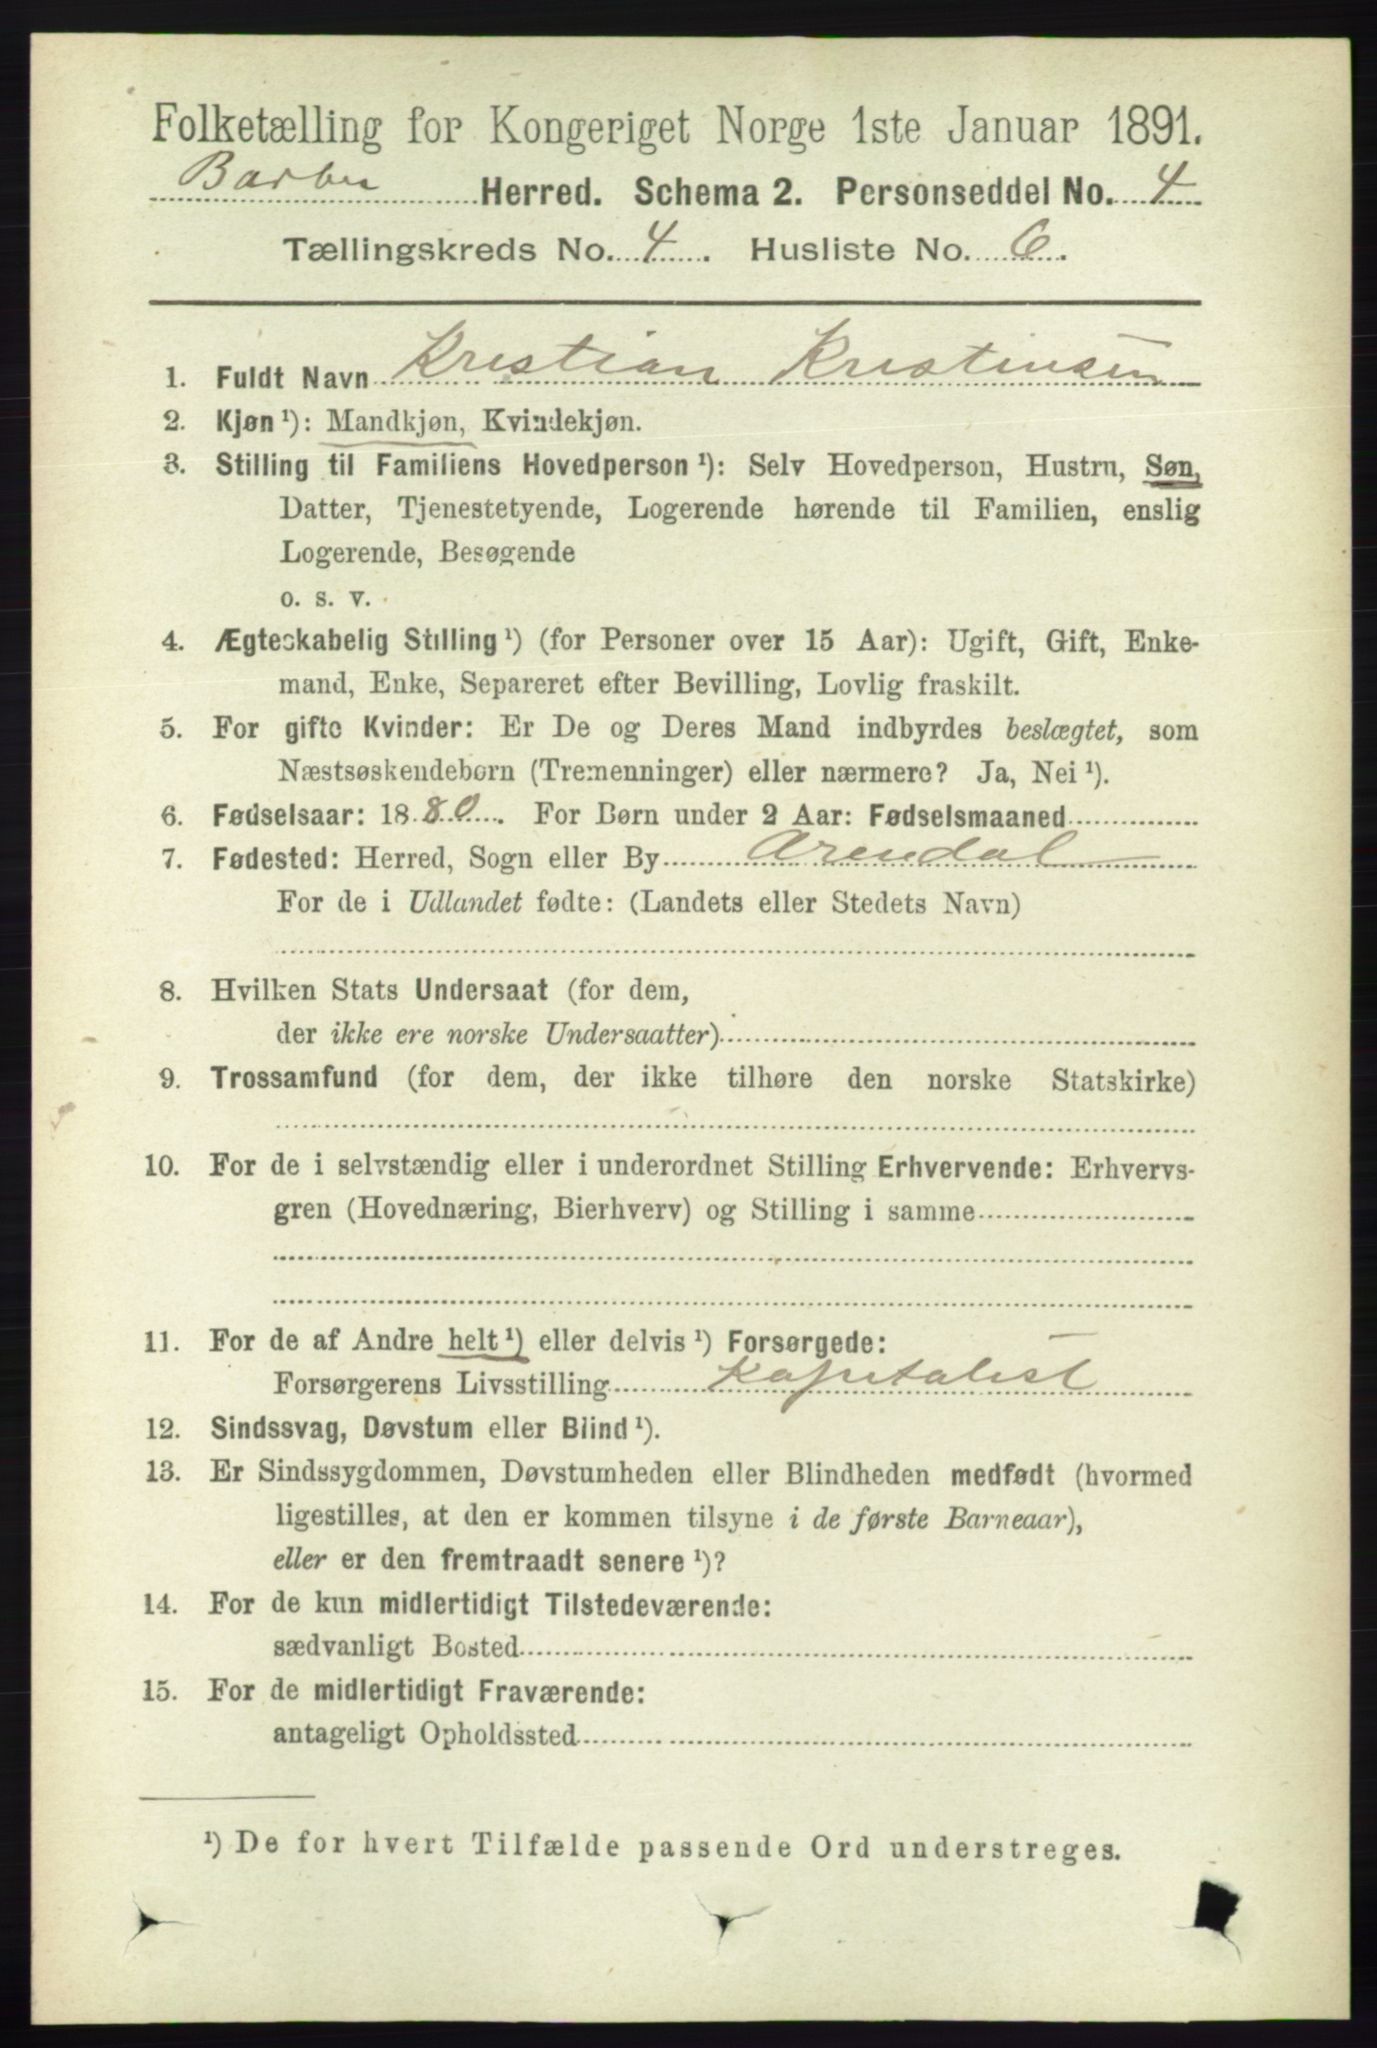 Folketælling for Kongeriget Norge 1ste Januar 1891.
Barbu Herred. Schema 2. Personseddel No. 4
Tællingskreds No. 4. Husliste No. 6.
1. Fuldt Navn Kristian Kristensen
2. Kjøn ¹): Mandkjøn, Kvindekjøn.
3. Stilling til Familiens Hovedperson ¹): Selv Hovedperson, Hustru, Søn,
Datter, Tjenestetyende, Logerende hørende til Familien, enslig
Logerende, Besøgende
o. s. v.
4. Ægteskabelig Stilling ¹) (for Personer over 15 Aar): Ugift, Gift, Enke-
mand, Enke, Separeret efter Bevilling, Lovlig fraskilt.
5. For gifte Kvinder: Er De og Deres Mand indbyrdes beslægtet, som
Næstsøskendebørn (Tremenninger) eller nærmere? Ja, Nei ¹).
6. Fødselsaar: 1880. For Børn under 2 Aar: Fødselsmaaned
7. Fødested: Herred, Sogn eller By Arendal
For de i Udlandet fødte: (Landets eller Stedets Navn)
8. Hvilken Stats Undersaat (for dem,
der ikke ere norske Undersaatter)
9. Trossamfund (for dem, der ikke tilhøre den norske Statskirke)
10. For de i selvstændig eller i underordnet Stilling Erhvervende: Erhvervs-
gren (Hovednæring, Bierhverv) og Stilling i samme
11. For de af Andre helt ¹) eller delvis ¹) Forsørgede:
Forsørgerens Livsstilling Kapitalist
12. Sindssvag, Døvstum eller Blind ¹).
13. Er Sindssygdommen, Døvstumheden eller Blindheden medfødt (hvormed
ligestilles, at den er kommen tilsyne i de første Barneaar),
eller er den fremtraadt senere ¹)?
14. For de kun midlertidigt Tilstedeværende:
sædvanligt Bosted
15. For de midlertidigt Fraværende:
antageligt Opholdssted
¹) De for hvert Tilfælde passende Ord understreges.